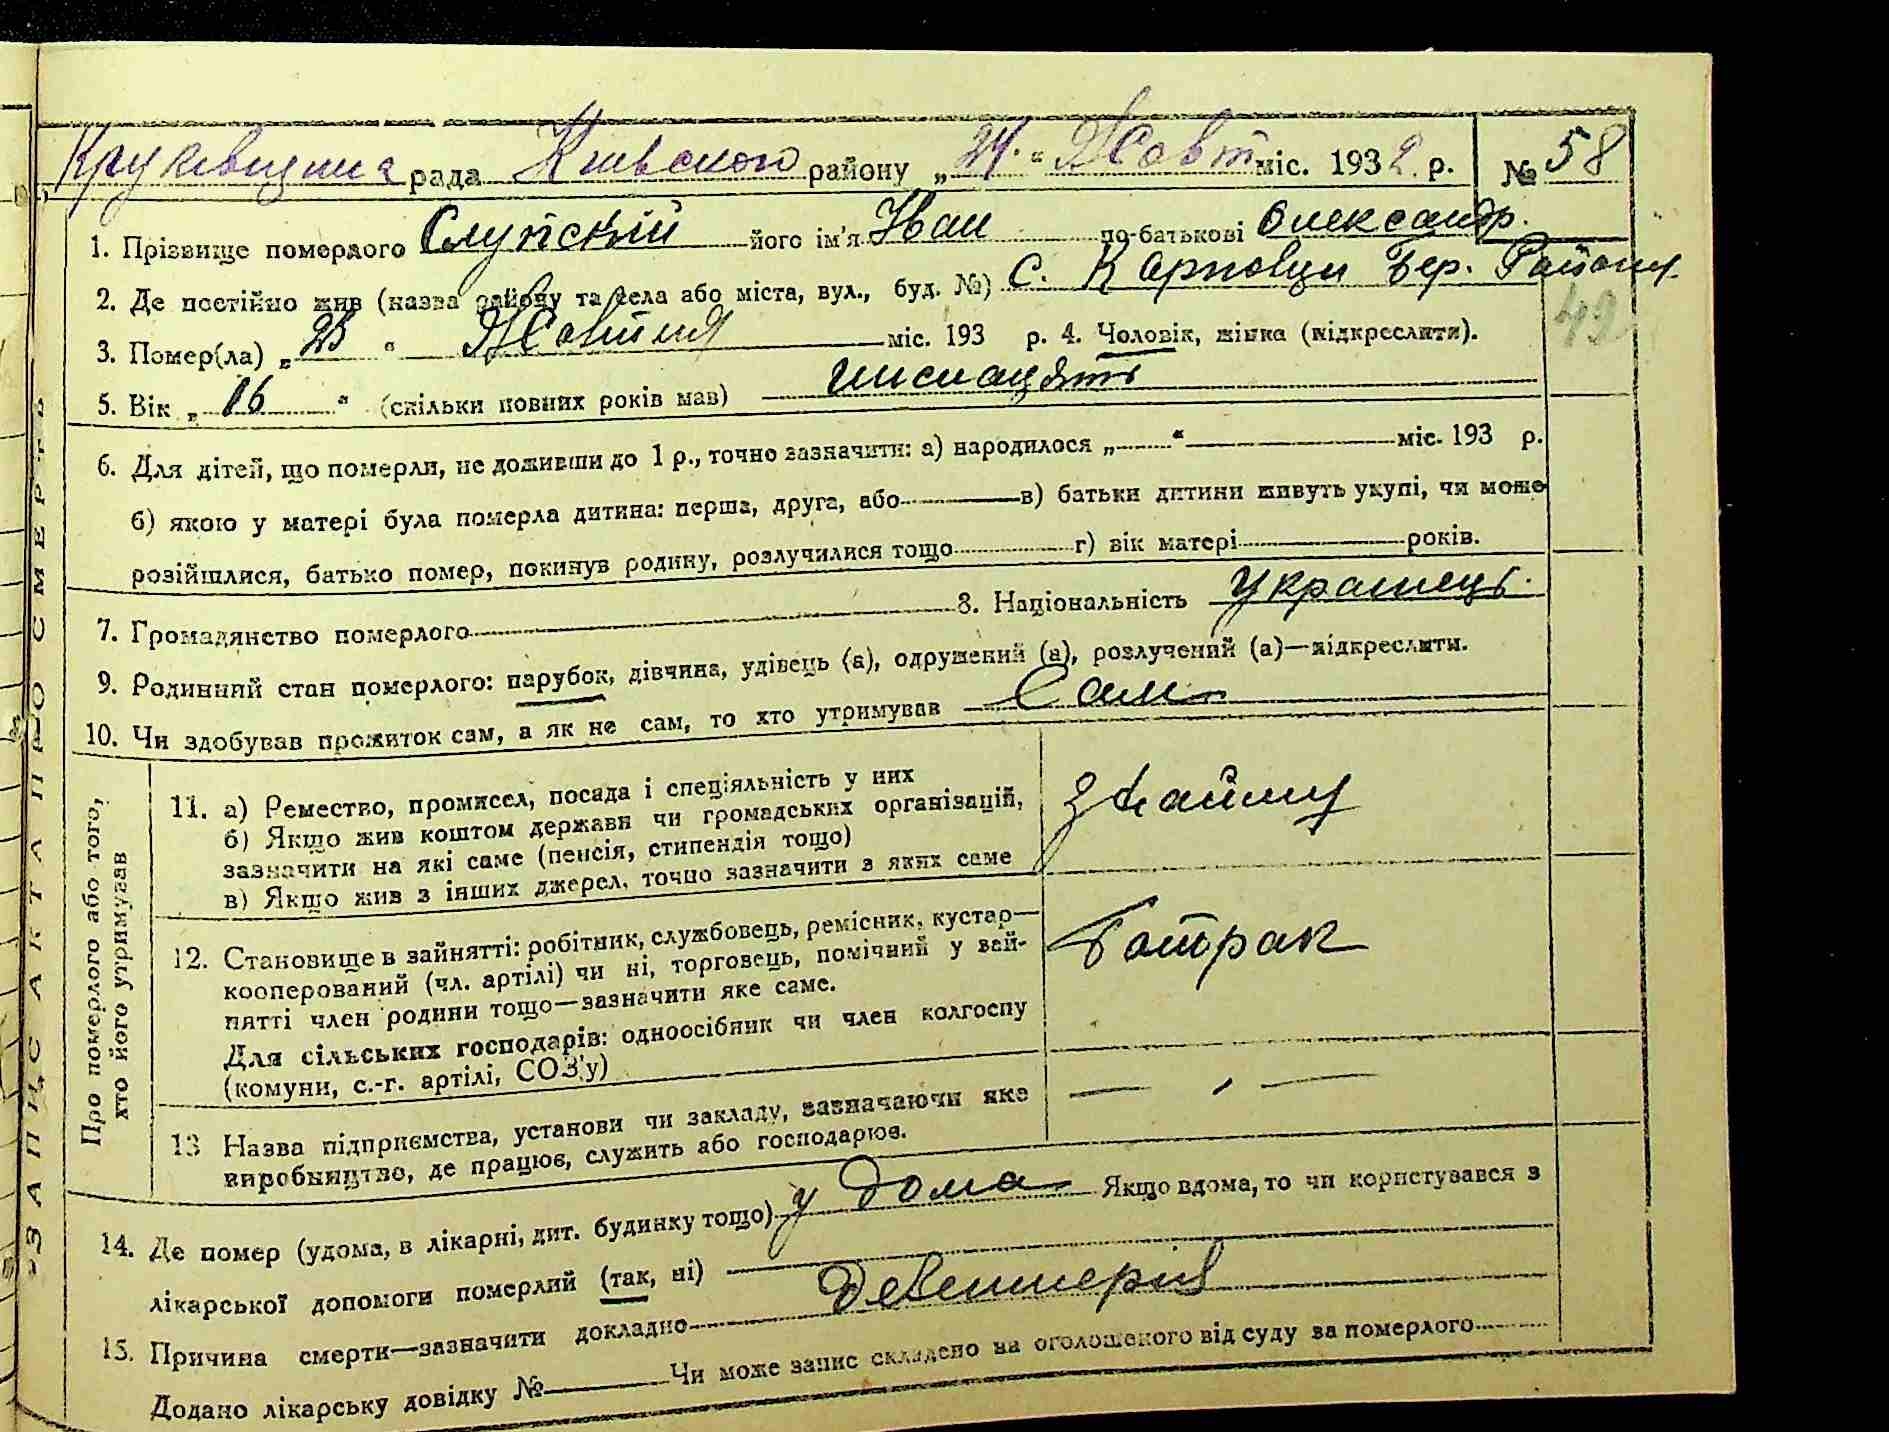 Круківщина рада Київского району „24.“ Жовт міс. 1932 р. № 58
1. Прізвище померлого Слупский його ім'я Иван по-батькові Олександр.
2. Де постійно жив (назва району та села або міста, вул., буд. №) С. Карповци Бер. Району
3. Помер(ла) „23“ Жовтня міс. 193 р. 4. Чоловік, жінка (підкреслити).
49
5. Вік „16“ (скільки повних років мав) шиснацять
6. Для дітей, що померли, не доживши до 1 р., точно зазначити: а) народилося „ “ міс. 193 р.
б) якою у матері була померла дитина: перша, друга, або в) батьки дитини живуть укупі, чи може
розійшлися, батько помер, покинув родину, розлучилися тощо г) вік матері років.
7. Громадянство померлого 8. Національність Украинець.
9. Родинний стан померлого: парубок, дівчина, удівець (а), одружений (а), розлучений (а)—підкреслити.
10. Чи здобував прожиток сам, а як не сам, то хто утримував Сам
Про померлого або того,
хто його утримував
11. а) Ремество, промисел, посада і спеціяльність у них
б) Якщо жив коштом держави чи громадських організацій,
зазначити на які саме (пенсія, стипендія тощо)
в) Якщо жив з інших джерел, точно зазначити з яких саме
з найму
12. Становище в зайнятті: робітник, службовець, ремісник, кустар—
кооперований (чл. артілі) чи ні, торговець, помічний у зай-
нятті член родини тощо—зазначити яке саме.
Для сільських господарів: одноосібник чи член колгоспу
(комуни, с.-г. артілі, СОЗ'у)
Батрак
13 Назва підприємства, установи чи закладу, зазначаючи яке
виробництво, де працює, служить або господарює.
— , —
14. Де помер (удома, в лікарні, дит. будинку тощо) у дома Якщо вдома, то чи користувався з
лікарської допомоги померлий (так, ні)
15. Причина смерти—зазначити докладно Дезентерия
Додано лікарську довідку № Чи може запис складено на оголошеного від суду за померлого
ЗАПИС АКТА ПРО СМЕРТЬ